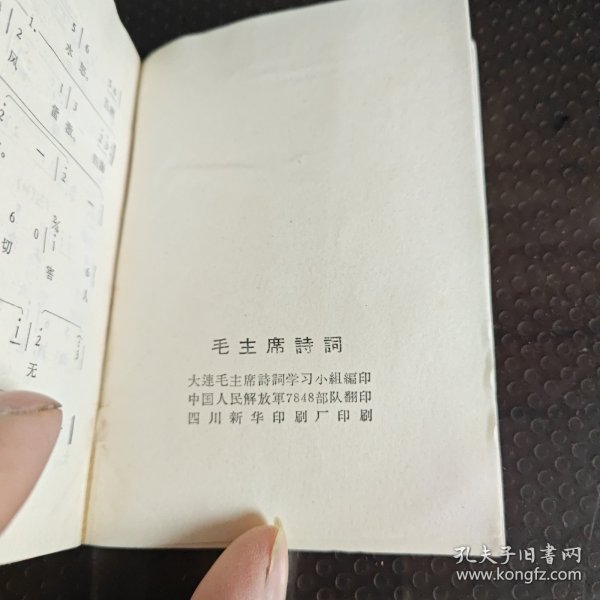 1. 5 | 6
2 水怒,
风
1 | 3
雷激。
2
— | 2 —
6 0 | i
切 害 人
i | 2
无
毛主席詩詞
大連毛主席詩詞学习小組編印
中国人民解放軍7848部队翻印
四川新华印刷厂印刷
孔夫子旧书网
www.kongfz.com